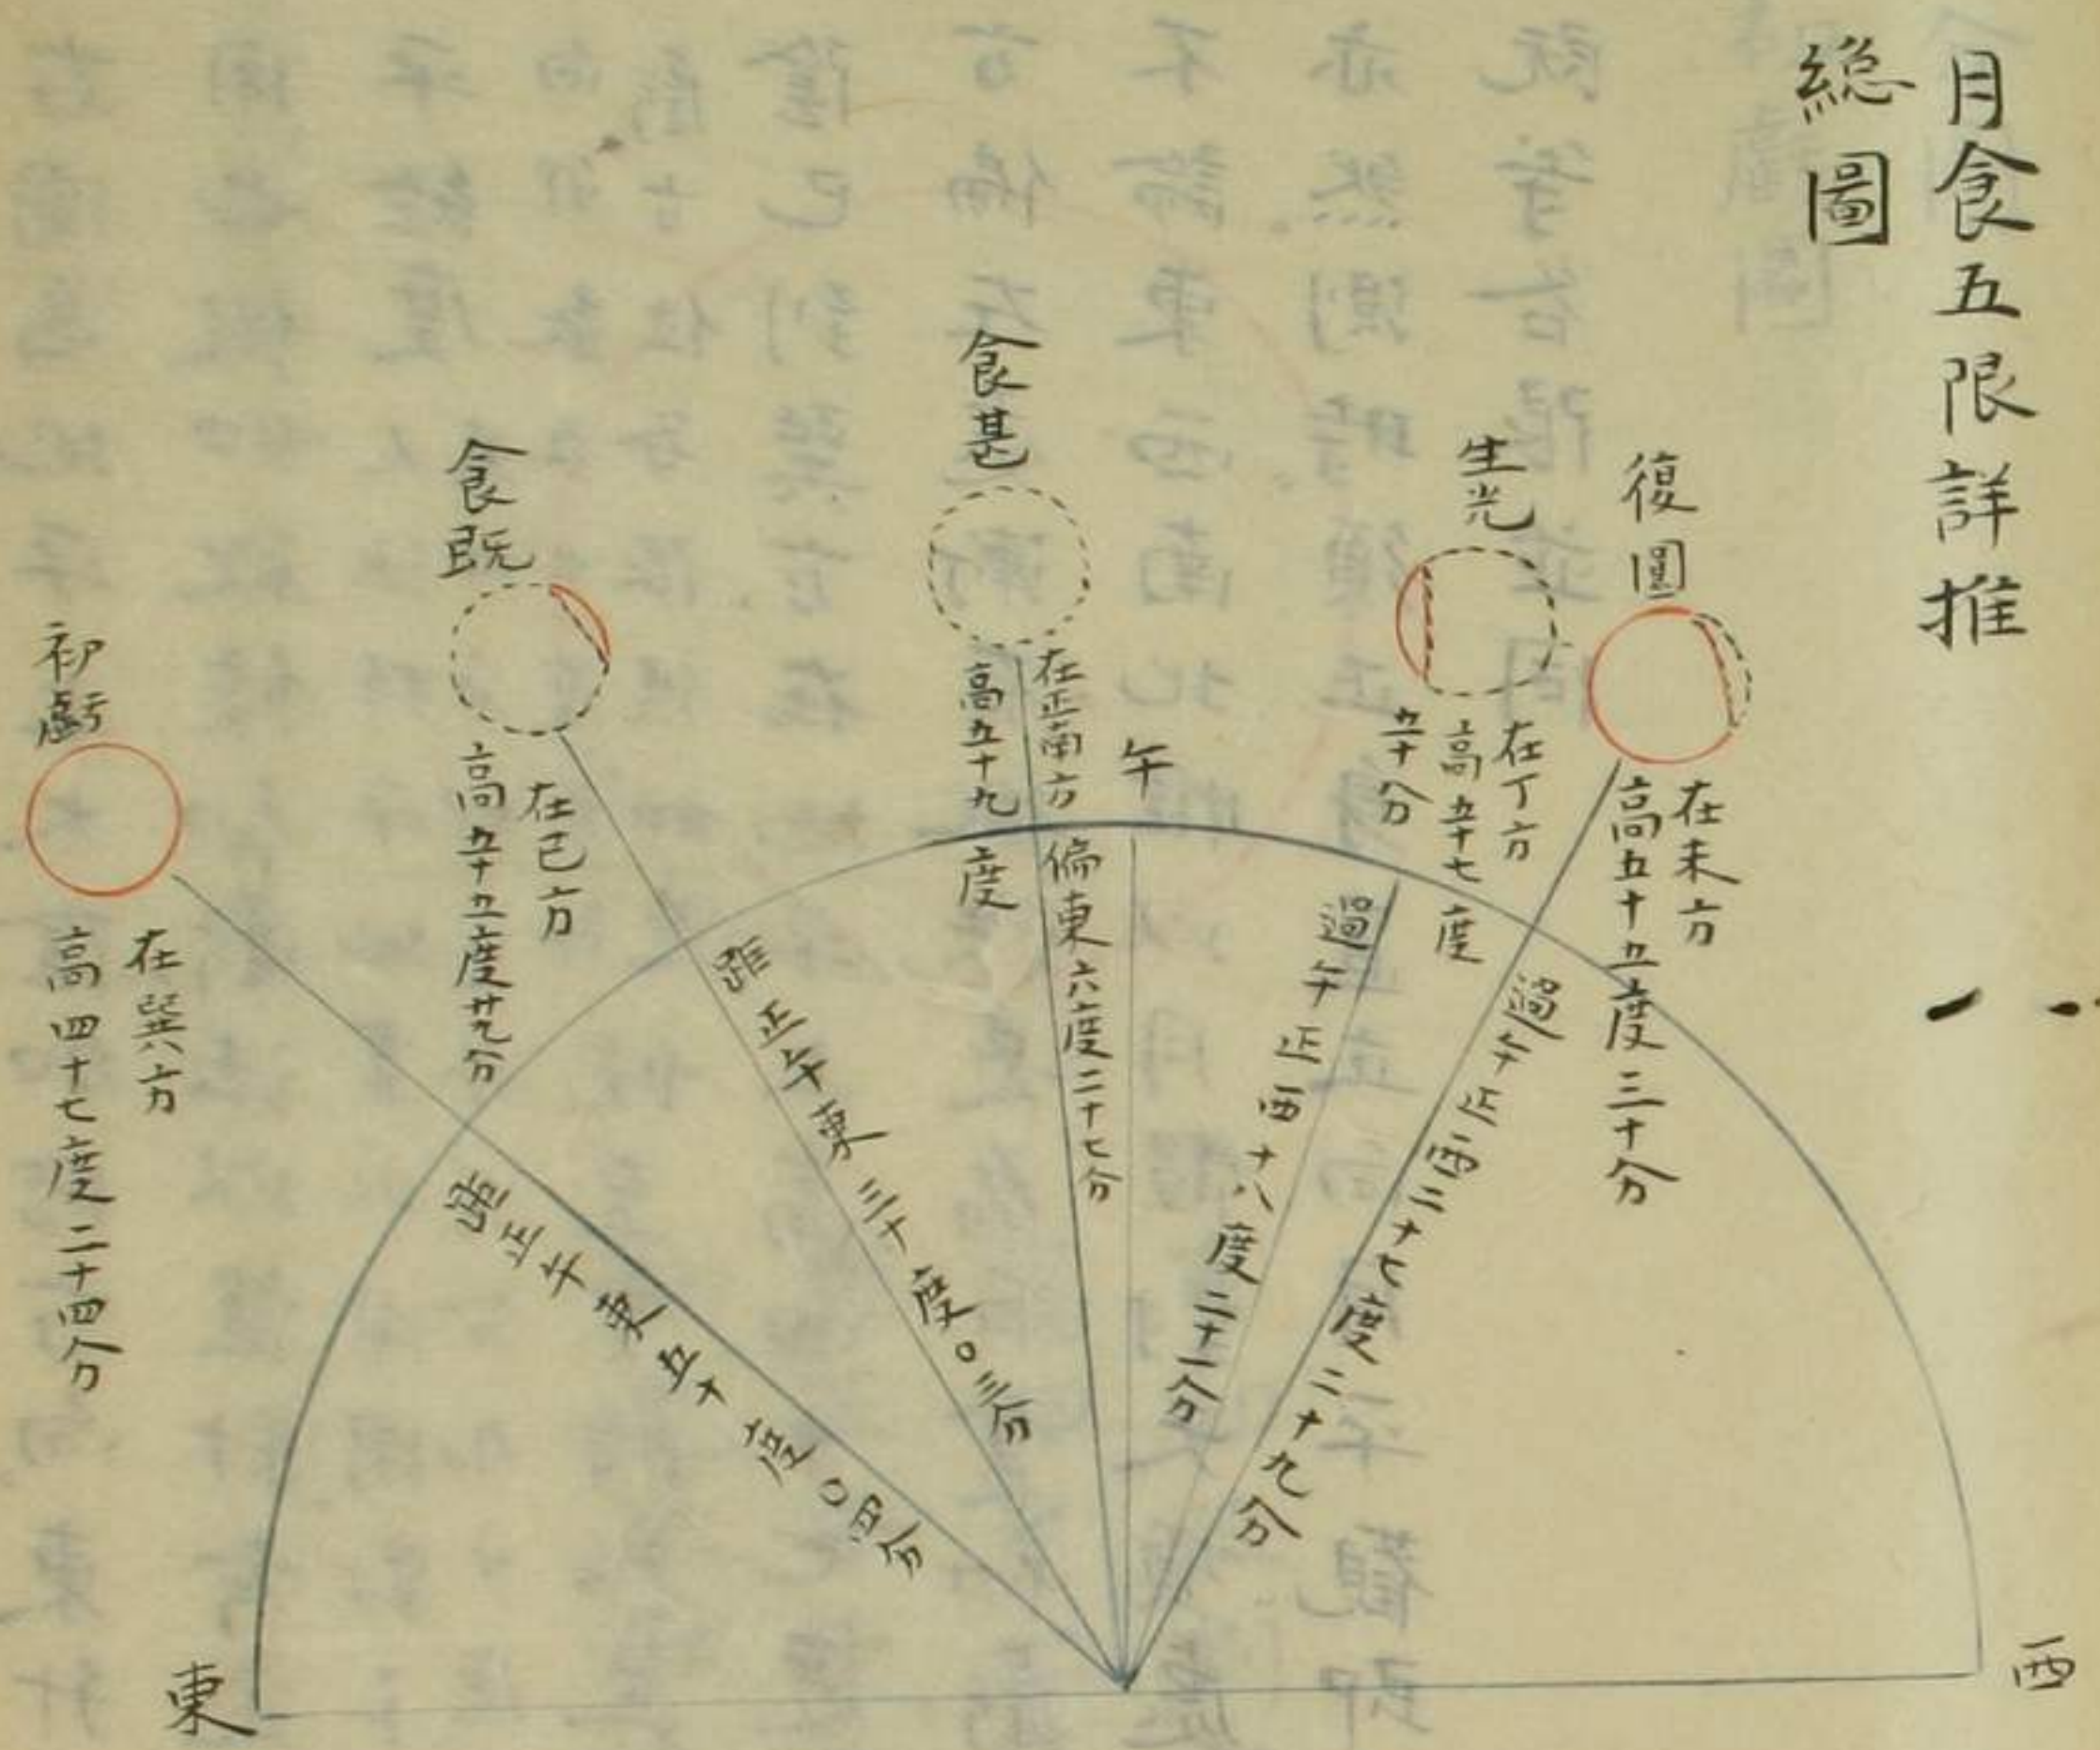 月食五限詳推
総圖
復圓
在未方
高五十五度三十分
過午正西二十七度二十九分
生光
在丁方
高五十七度
五十分
過午正西十八度二十一分
午
食甚
在正南方
偏東六度二十七分
高五十九度
食既
在巳方
高五十五度廿九分
距正午東三十度〇三分
初虧
在巽方
高四十七度二十四分
距正午東五十度〇四分
東
西